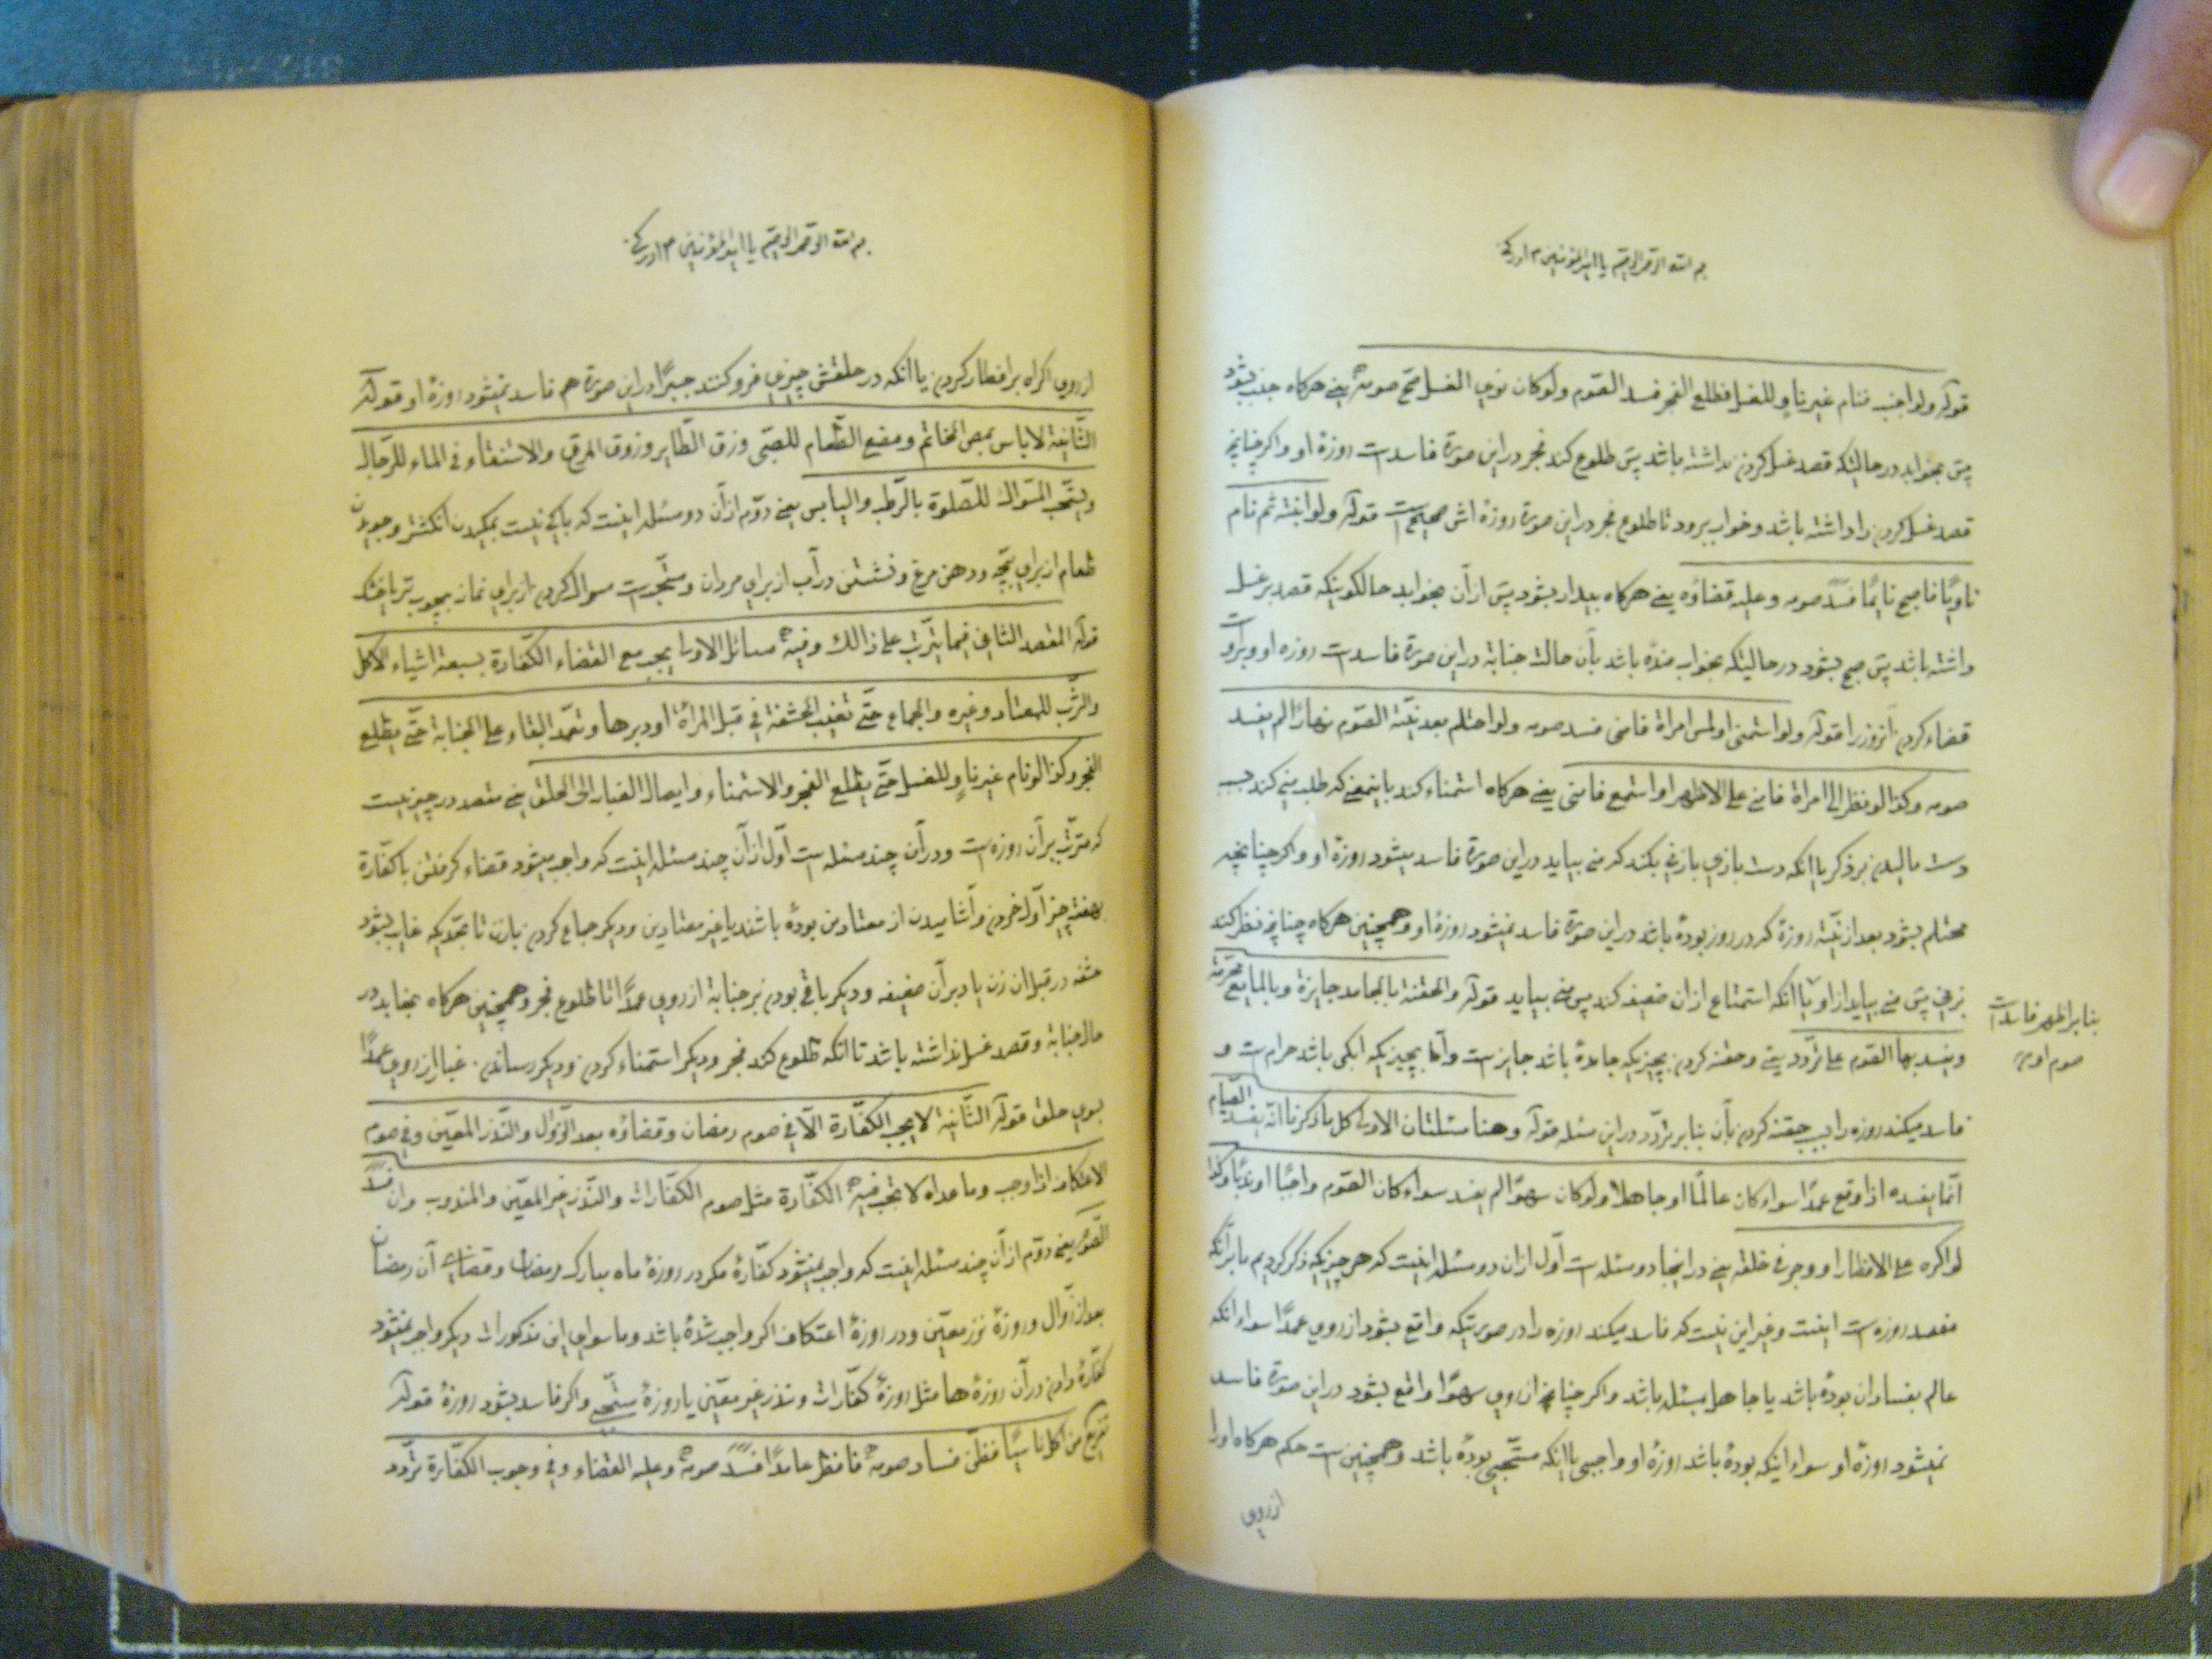 بسم الله الرحمن الرحیم یا امیرالمؤمنین ادرکنی
قوله ولو اجنب فنام غیر ناوٍ للغسل فطلع الفجر فسد الصّوم ولو کان نوی الغسل صحّ صومه یعنی هرکاه جنب بشود
پس بخوابد در حالتیکه قصد غسل کردن نداشته باشد پس طلوع کند فجر در این صورة فاسد است روزهٔ او و اکر چنانچه
قصد غسل کردن را داشته باشد و خواب برود تا طلوع فجر در این صورة روزه اش صحیح است قوله ولو انتبه ثم نام
ناویًا فاصبح نایمًا فسد صومه وعلیه قضاؤه یعنی هرکاه بیدار بشود پس از آن بخوابد حالکونیکه قصد بر غسل
داشته باشد پس صبح بشود در حالتیکه بخواب مانده باشد بآن حالت جنابة در این صورة فاسد است روزه او و بر اوست
قضاء کردن آنروز را قوله ولو استمنی او لمس امراة فامنی فسد صومه ولو احتلم بعد نیّة الصّوم نهارًا لم یفسد
صومه وکذا لو نظر الی امراة فامنی علی الاظهر او استمع فامنی یعنی هرکاه استمناء کند باینمعنی که طلب منی کند بسبب
دست مالیدن بر ذکر یا انکه دست بازی با زنی بکند که منی بیاید در این صورة فاسد میشود روزهٔ او و اکر چنانچه
محتلم بشود بعد از نیّة روزهٔ که در روز بوده باشد در این صورة فاسد نمیشود روزهٔ او و همچنین هرکاه چنانچه نظر کند
بزنی پس منی بیاید از او یا آنکه استمتاع از ان ضعیفه کند پس منی بیاید قوله والحقنة بالجامد جایزة وبالمایع محرّمة
بنابر اظهر فاسد است
صوم او
ویفسد بها الصّوم علی تردّد یعنی و حقنه کردن بچیزیکه جامد باشد جایز است و امّا بچیزیکه ابکی باشد حرام است و
فاسد میکند روزه را بسبب حقنه کردن بآن بنابر تردّد در این مسئله قوله وهنا مسئلتان الاولی کل ما ذکرنا انّه یفسد الصّیام
انّما یفسده اذا وقع عمدًا سواء کان عالمًا او جاهلًا ولو کان سهوًا لم یفسد سواء کان الصّوم واجبًا او ندبًا وکذا
لو اکره علی الافطار او وجر فی حلقه یعنی در اینجا دو مسئله است اوّل از ان دو مسئله اینست که هر چیزیکه ذکر کردیم ما بر آنکه
مفسد روزه است اینست و غیر این نیست که فاسد میکند روزه را در صورتیکه واقع بشود از روی عمدًا سواء انکه
عالم بفساد ان بوده باشد یا جاهل بمسئله باشد و اکر چنانچه از روی سهوًا واقع بشود در این صورة فاسد
نمیشود روزهٔ او سواء اینکه بوده باشد روزهٔ او واجبی یا انکه مستحبّی بوده باشد و همچنین است حکم هرکاه او را
از روی
بسم الله الرحمن الرحیم یا امیرالمؤمنین ادرکنی
از روی اکراه بر افطار کردن یا انکه در حلقش چیزی فرو کنند جبرًا در این صورة هم فاسد نمیشود روزهٔ او قوله
الثّانیة لا باس بمصّ الخاتم ومضغ الطّعام للصّبی وزق الطّایر وذوق المرق والاستنقاء فی الماء للرّجال
ویستحبّ السّواک للصّلوة بالرّطب والیابس یعنی دوّم از آن دو مسئله اینست که باکی نیست بمکیدن انکشتر و جویدن
طعام از برای بچّه و دهن مرغ و نشستن در آب از برای مردان و مستحب است مسواک کردن از برای نماز بچوب تر یا خشک
قوله المقصد الثانی فیما یترتّب علی ذالک وفیه مسائل الاولی یجب مع القضاء الکفّارة بسبعة اشیاء الاکل
والشّرب للمعتاد وغیره والجماع حتّی تغیب الحشفة فی قبل المرأة او دبرها وتعمّد البقاء علی الجنابة حتّی یطلع
الفجر وکذا لو نام غیر ناوٍ للغسل حتّی یطلع الفجر والاستمناء وایصال الغبار الی الحلق یعنی مقصد در چیزیست
که مترتّب بر آن روزه است و در آن چند مسئله است اوّل از آن چند مسئله اینست که واجب میشود قضاء کرفتن با کفّارة
بهفت چیز اوّل خوردن و آشامیدن از معتادین بوده باشند یا غیر معتادین و دیکر جماع کردن بازن تا بحدّیکه غایب بشود
حشفه در قبل ان زن یا دبر آن ضعیفه و دیکر باقی بودن بر جنابة از روی عمدًا تا طلوع فجر و همچنین هرکاه بخوابد در
حال جنابة و قصد غسل نداشته باشد تا انکه طلوع کند فجر و دیکر استمناء کردن و دیکر رسانیدن غبار از روی عمدًا
بسوی حلق قوله الثّانیة لا یجب الکفّارة الّا فی صوم رمضان وقضاؤه بعد الزّوال والنّذر المعیّن وفی صوم
الاعتکاف اذا وجب وما عداه لا تجب فیه الکفّارة مثل صوم الکفّارات والنّذر غیر المعیّن والمندوب وان فسد
الصّوم یعنی دوّم از آن چند مسئله اینست که واجب نمیشود کفّارهٔ مکر در روزهٔ ماه مبارک رمضان و قضای آن رمضان
بعد از زوال و روزهٔ نذر معیّن و در روزهٔ اعتکاف اکر واجب شده باشد و ما سوای این مذکورات دیکر واجب نمیشود
کفّارهٔ دادن در آن روزهٔ ها مثل روزهٔ کفّارات و نذر غیر معیّن یا روزهٔ سنّتی و اکر فاسد بشود روزهٔ قوله
تفریع من اکل ناسیًا فظنّ فساد صومه فافطر عامدًا فسد صومه وعلیه القضاء وفی وجوب الکفّارة تردّد